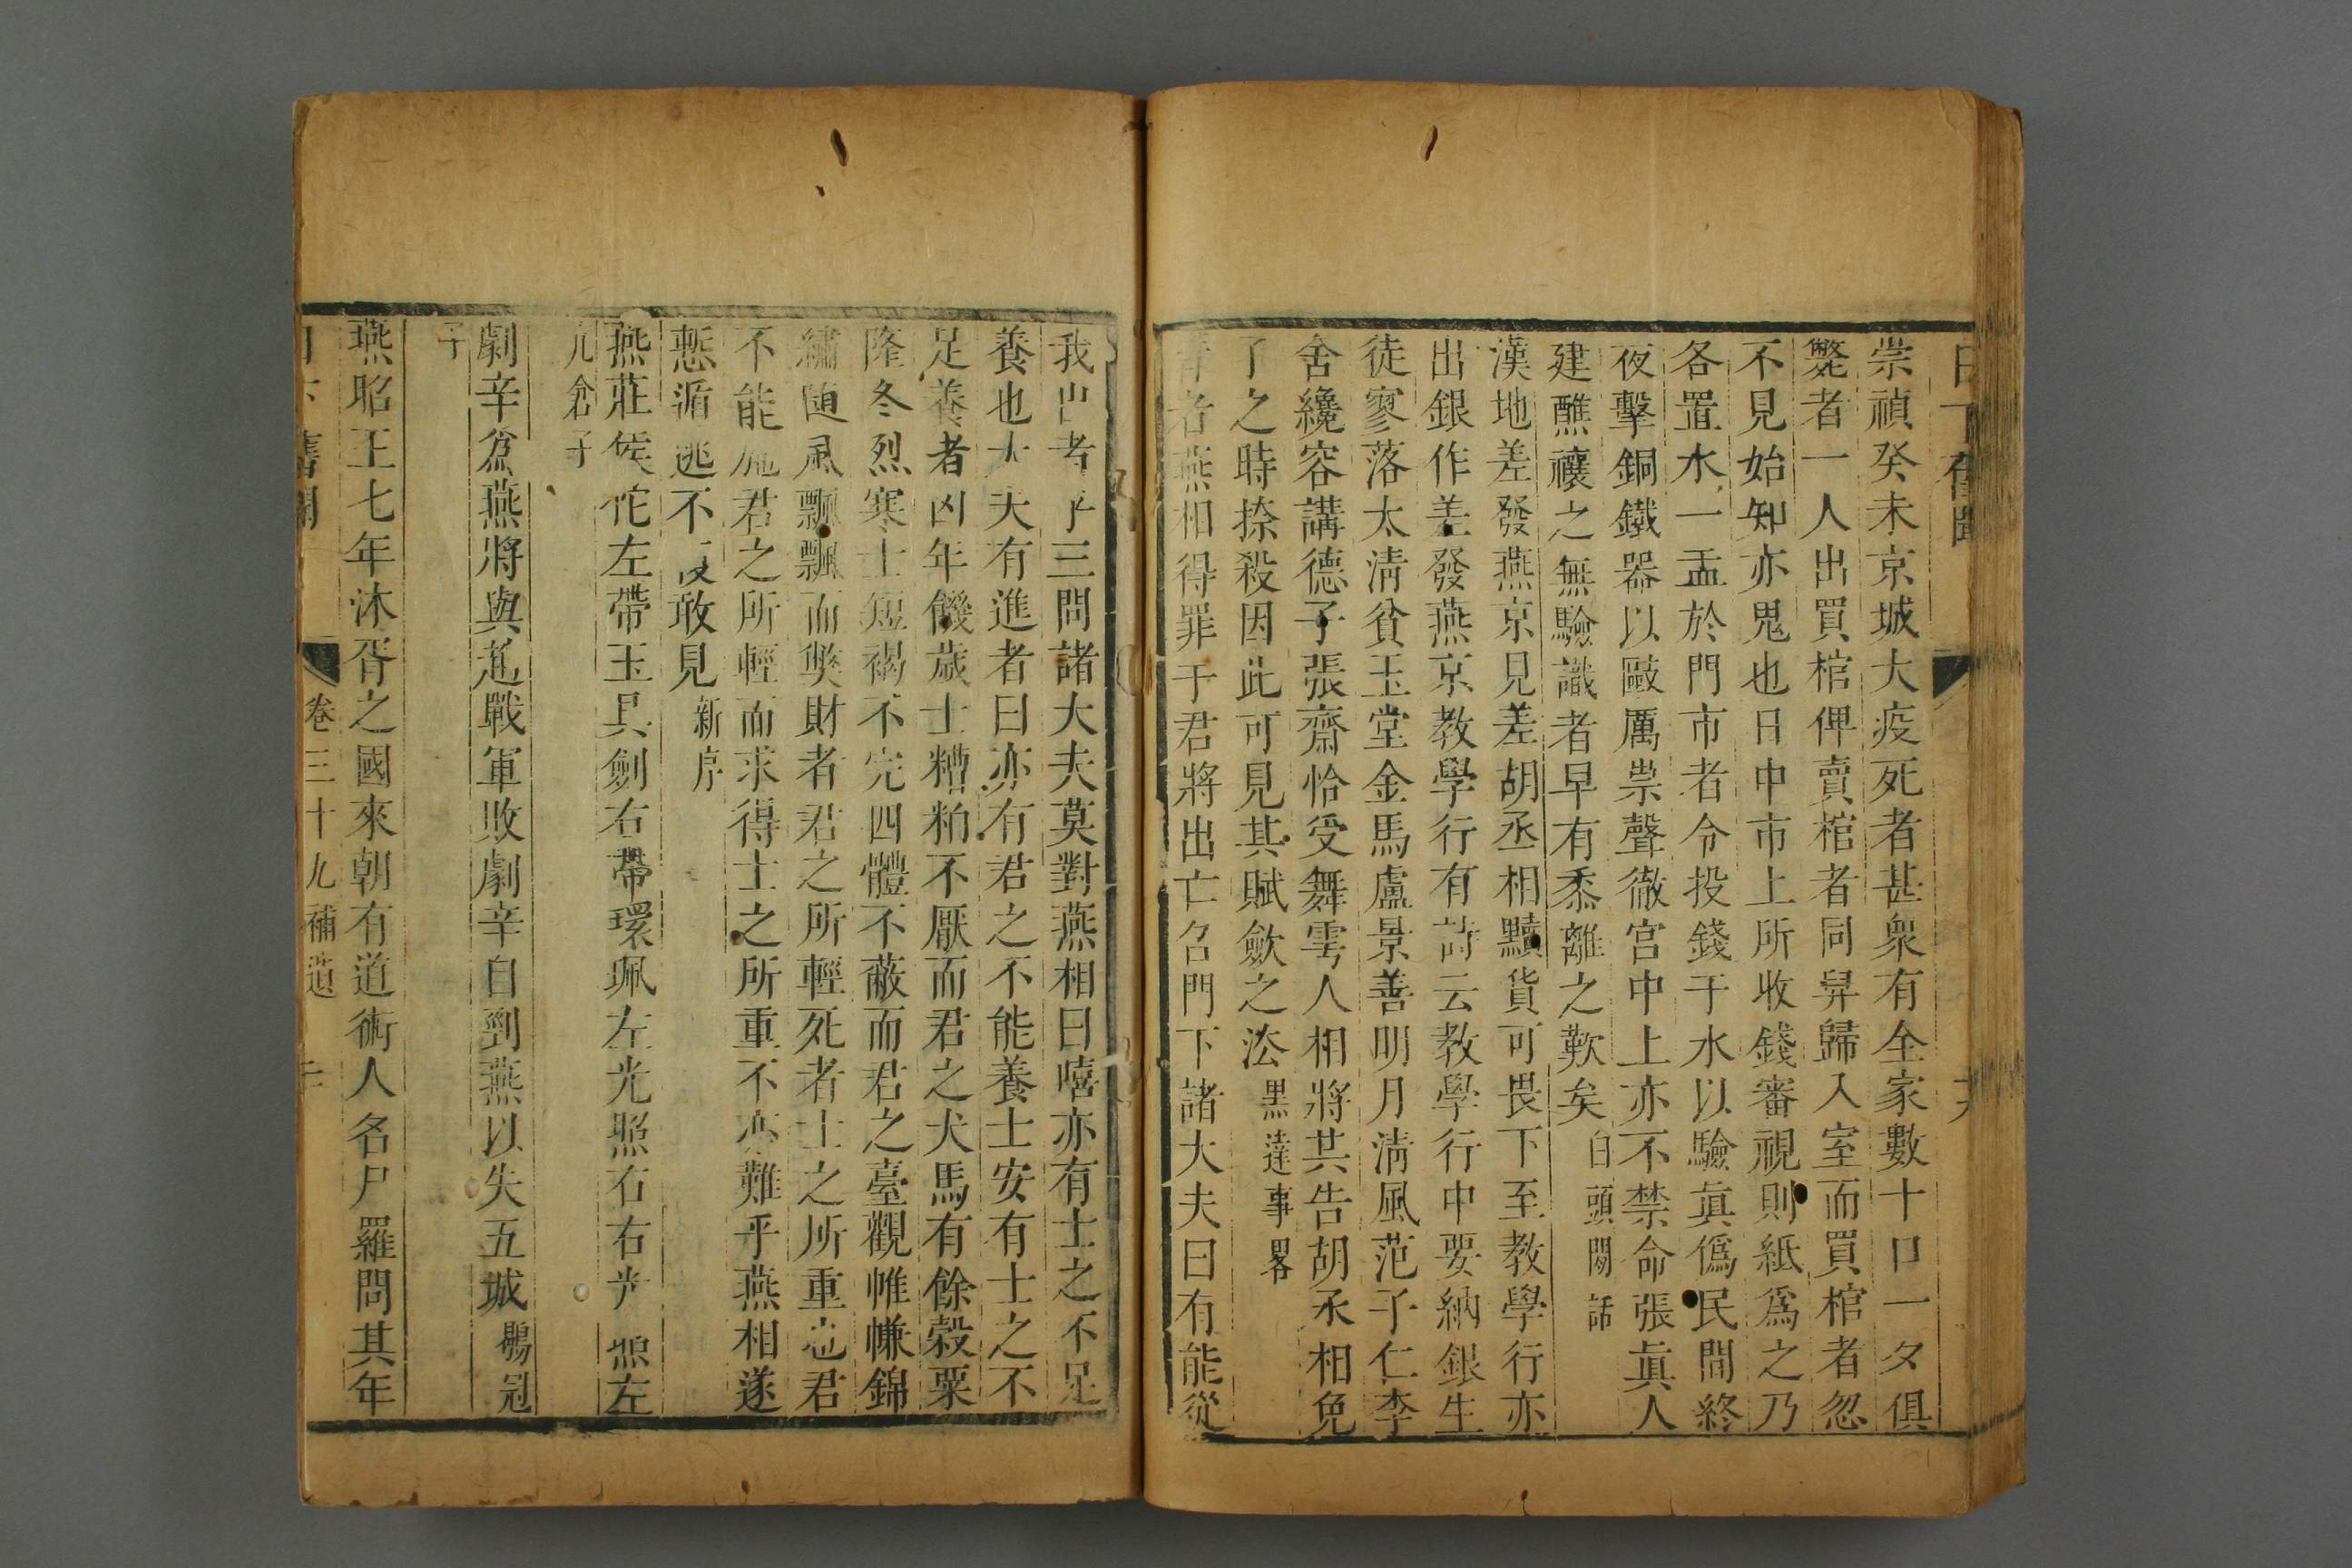 崇禎癸未京城大疫死者甚衆有全家數十口一夕俱
斃者一人出買棺俾賣棺者同舁歸入室而買棺者忽
不見始知亦鬼也日中市上所收錢審視則紙爲之乃
各置水一盂於門市者令投錢于水以驗眞僞民間終
夜擊銅鐵器以敺厲祟聲徹宫中上亦不禁命張眞人
建醮禳之無驗識者早有黍離之歎矣白頭閒話
漢地差發燕京見差胡丞相黷貨可畏下至教學行亦
出銀作差發燕京教學行有詩云教學行中要納銀生
徒寥落太淸貧玉堂金馬盧景善明月淸風范子仁李
舍纔容講德子張齋恰受舞雩人相將共告胡丞相免
了之時捺殺因此可見其賦歛之法黒達事畧
昔者燕相得罪于君將出亡召門下諸大夫曰有能從
我出者乎三問諸大夫莫對燕相曰嘻亦有士之不足
養也大夫有進者曰亦有君之不能養士安有士之不
足養者凶年饑歲士糟粕不厭而君之犬馬有餘榖粟
隆冬烈寒士短褐不完四體不蔽而君之臺觀帷㡘錦
繡随風飄飄而獘財者君之所輕死者士之所重也君
不能施君之所輕而求得士之所重不亦難乎燕相遂
慙遁逃不復敢見新序
燕莊侯佗左帶玉具劍右帶環珮左光照右右光照左
亢倉子
劇辛爲燕將與趙戰軍敗劇辛自剄燕以失五城鶡冠
子
燕昭王七年沐胥之國來朝有道術人名尸羅問其年
日下舊聞 卷三十九補遺